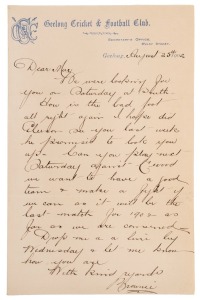 Geelong Cricket & Football Club.
Secretary's Office,
Geelong, August 25th 02
Dear Alex
We were looking for
you on Saturday at South
How is the bad foot
all right again I hopes did
see you last week
he promised to look you
up. Can you play next
Saturday against
we want to have a good
team & make a fight if
we can as it will be the
last match for 1902 as
far as we are concerned
Drop me a line by
Wednesday & let me know
how you are
With kind regards